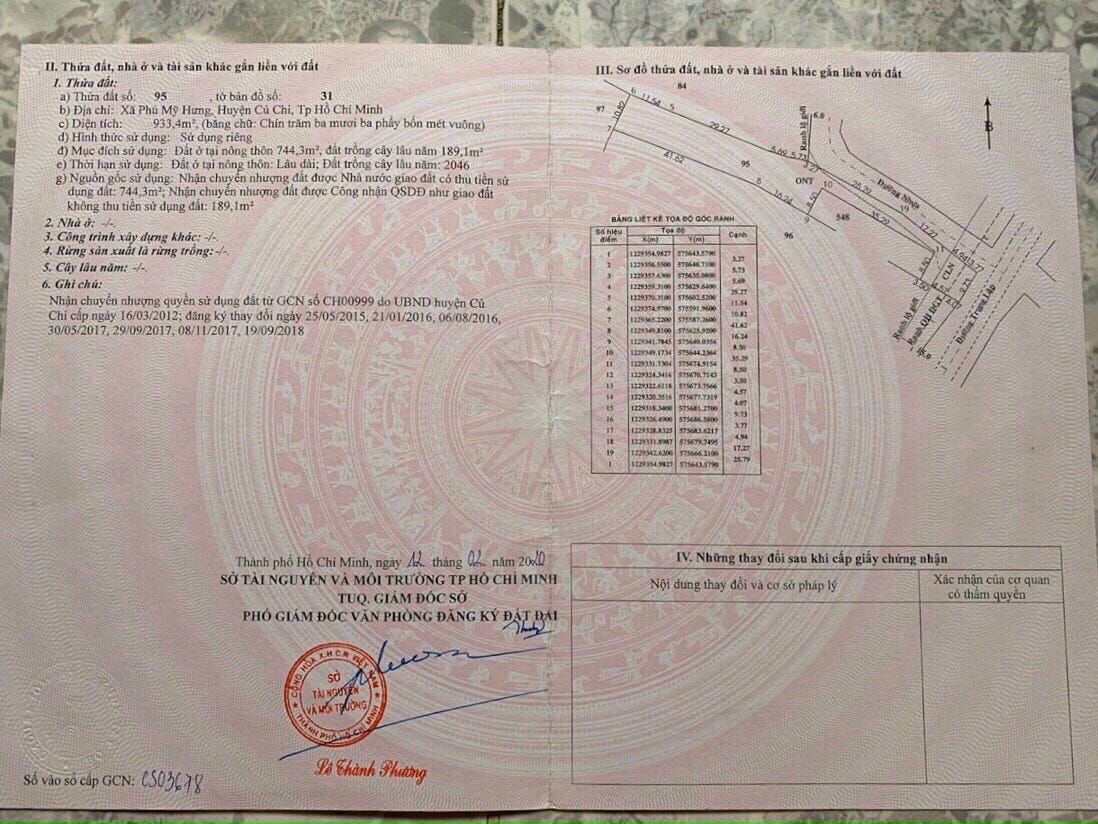 II. Thửa đất, nhà ở và tài sản khác gắn liền với đất
1. Thửa đất:
a) Thửa đất số: 95 , tờ bản đồ số: 31
b) Địa chỉ: Xã Phú Mỹ Hưng, Huyện Củ Chi, Tp Hồ Chí Minh
c) Diện tích: 933,4m², (bằng chữ: Chín trăm ba mươi ba phẩy bốn mét vuông)
d) Hình thức sử dụng: Sử dụng riêng
đ) Mục đích sử dụng: Đất ở tại nông thôn 744,3m², đất trồng cây lâu năm 189,1m²
e) Thời hạn sử dụng: Đất ở tại nông thôn: Lâu dài; Đất trồng cây lâu năm: 2046
g) Nguồn gốc sử dụng: Nhận chuyển nhượng đất được Nhà nước giao đất có thu tiền sử
dụng đất: 744,3m²; Nhận chuyển nhượng đất được Công nhận QSDĐ như giao đất
không thu tiền sử dụng đất: 189,1m²
2. Nhà ở: -/-
3. Công trình xây dựng khác: -/-.
4. Rừng sản xuất là rừng trồng:-/-.
5. Cây lâu năm: -/-.
6. Ghi chú:
Nhận chuyển nhượng quyền sử dụng đất từ GCN số CH00999 do UBND huyện Củ
Chi cấp ngày 16/03/2012; đăng ký thay đổi ngày 25/05/2015, 21/01/2016, 06/08/2016,
30/05/2017, 29/09/2017, 08/11/2017, 19/09/2018
Thành phố Hồ Chí Minh, ngày 12 tháng 02 năm 2020
SỞ TÀI NGUYÊN VÀ MÔI TRƯỜNG TP HỒ CHÍ MINH
TUQ. GIÁM ĐỐC SỞ
PHÓ GIÁM ĐỐC VĂN PHÒNG ĐĂNG KÝ ĐẤT ĐAI
CỘNG HÒA X.H.C.N VIỆT NAM
SỞ
TÀI NGUYÊN
VÀ MÔI TRƯỜNG
THÀNH PHỐ HỒ CHÍ MINH
Lê Thành Phương
Số vào sổ cấp GCN: CS03678
III. Sơ đồ thửa đất, nhà ở và tài sản khác gắn liền với đất
84
97
6
11.54
5
10.82
7
29.27
Ranh lộ giới
6.0
B
41.62
95
5.69
5.73
3.27
8
ONT
10
25.79
Đường Nhựa
16.24
8.50
9
548
35.29
19
17.27
96
11
8.50
4.94
3.77
CLN
9.73
3.50
4.57
4.07
Ranh lộ giới
Ranh QH HCT
15.0
Đường Trung Lập
BẢNG LIỆT KÊ TỌA ĐỘ GÓC RANH
Số hiệu điểm Tọa độ Cạnh
X(m) Y(m)
1 1229354.9827 575643.5790
3.27
2 1229356.5500 575640.7100
5.73
3 1229357.6300 575635.0800
5.69
4 1229359.3100 575629.6400
29.27
5 1229370.3100 575602.5200
11.54
6 1229374.9700 575591.9600
10.82
7 1229365.2200 575587.2600
41.62
8 1229349.8100 575625.9200
16.24
9 1229341.7845 575640.0354
8.50
10 1229349.1734 575644.2364
35.29
11 1229331.7304 575674.9154
8.50
12 1229324.3416 575670.7143
3.50
13 1229322.6118 575673.7566
4.57
14 1229320.3516 575677.7319
4.07
15 1229318.3400 575681.2700
9.73
16 1229326.4900 575686.5800
3.77
17 1229328.8325 575683.6217
4.94
18 1229331.8987 575679.7495
17.27
19 1229342.6200 575666.2100
25.79
1 1229354.9827 575643.5790
IV. Những thay đổi sau khi cấp giấy chứng nhận
Nội dung thay đổi và cơ sở pháp lý
Xác nhận của cơ quan
có thẩm quyền